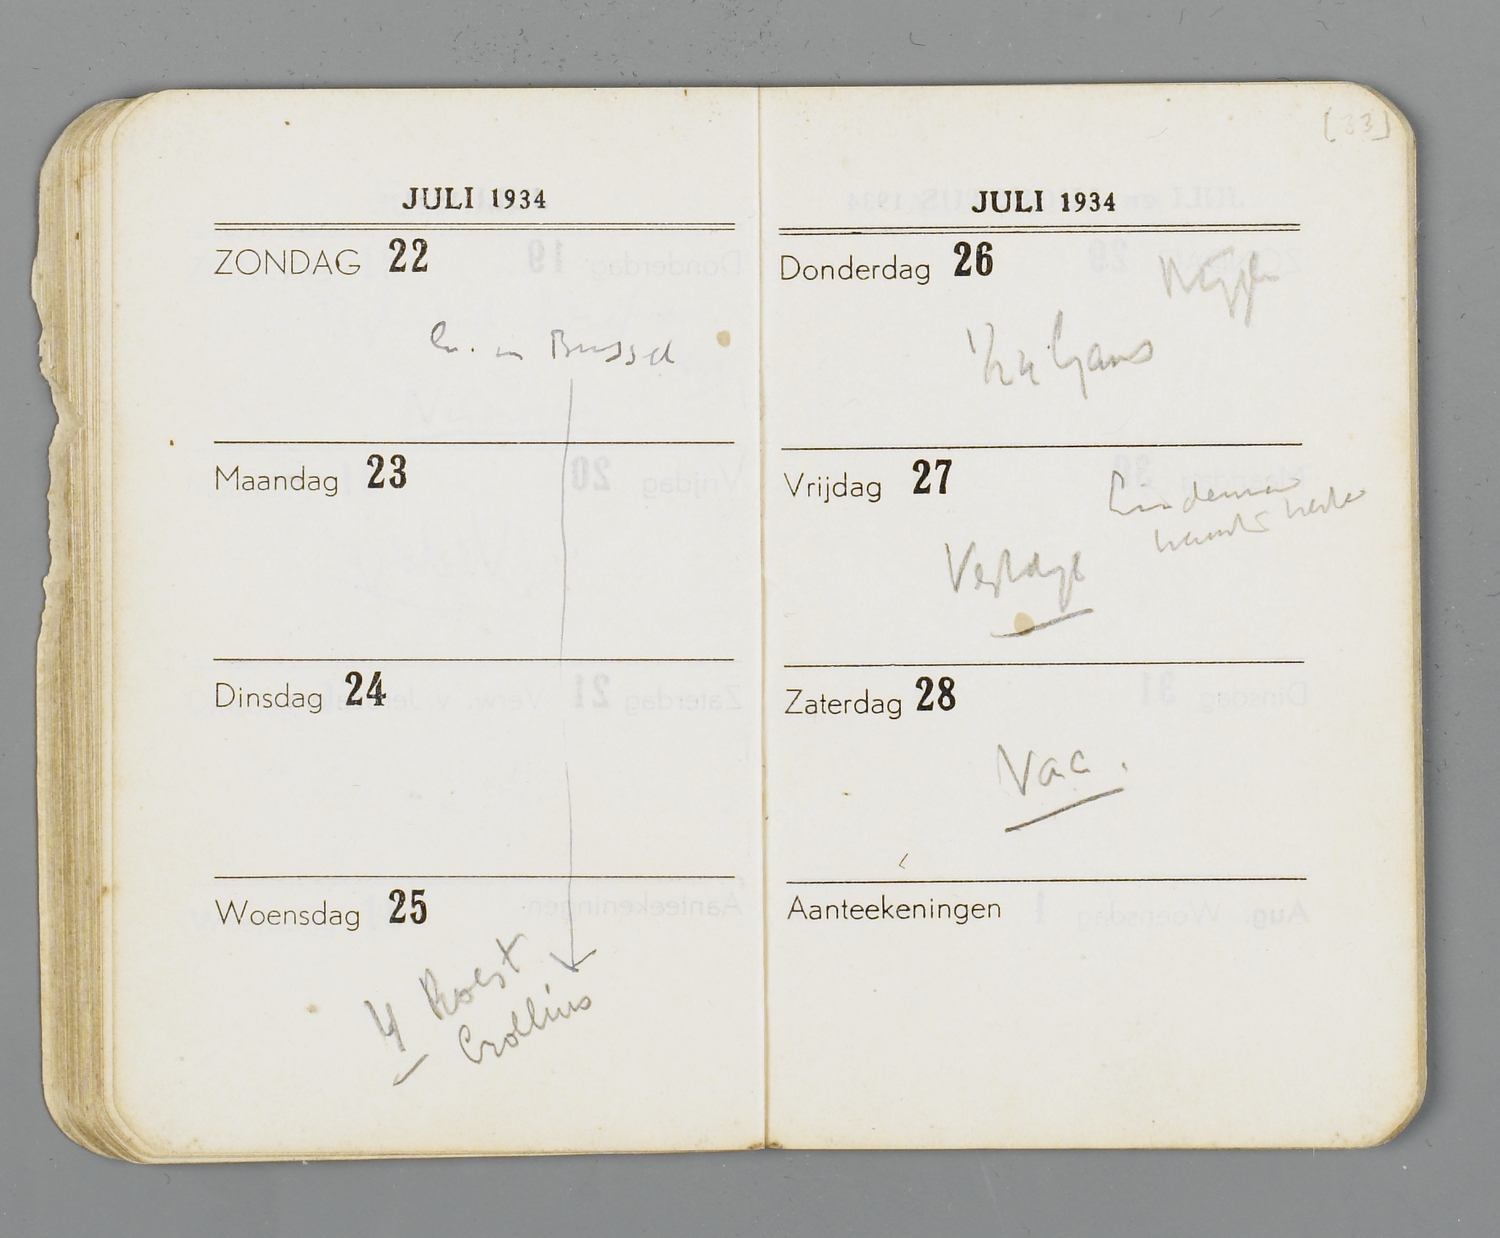 [33]
JULI 1934
ZONDAG 22
in Brussel
Maandag 23
Dinsdag 24
Woensdag 25
4 Roest
Crollius
JULI 1934
Donderdag 26
Gans
Vrijdag 27
Lindeman
Vestdijk
Zaterdag 28
Vac.
Aanteekeningen